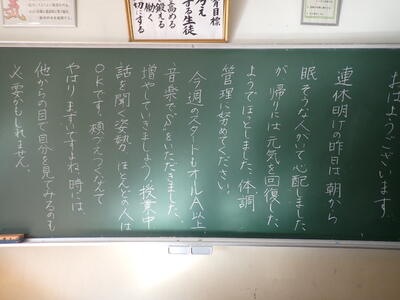 育目標
考え
守る生徒
高める
鍛える
働く
切にする
おはようございます。
連休明けの昨日は朝から
眠そうな人がいて心配しました
が、帰りには元気を回復した
ようでほっとしました。体調
管理に努めてください。
今週のスタートもオールA以上、
音楽で"S"をいただきました。
増やしていきましょう。授業中
話を聞く姿勢、ほとんどの人は
OKです。頬づえつくなんて
やはりまずいですよね。時には
他からの目で自分を見てみるのも
必要かもしれません。